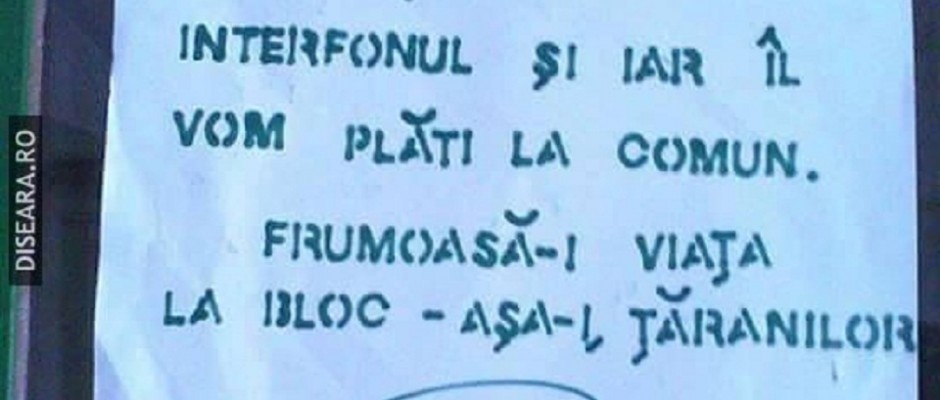 INTERFONUL ŞI IAR ÎL
VOM PLĂTI LA COMUN.
FRUMOASĂ-I VIAŢA
LA BLOC - AŞA-I, ŢĂRANILOR
DISEARA.RO